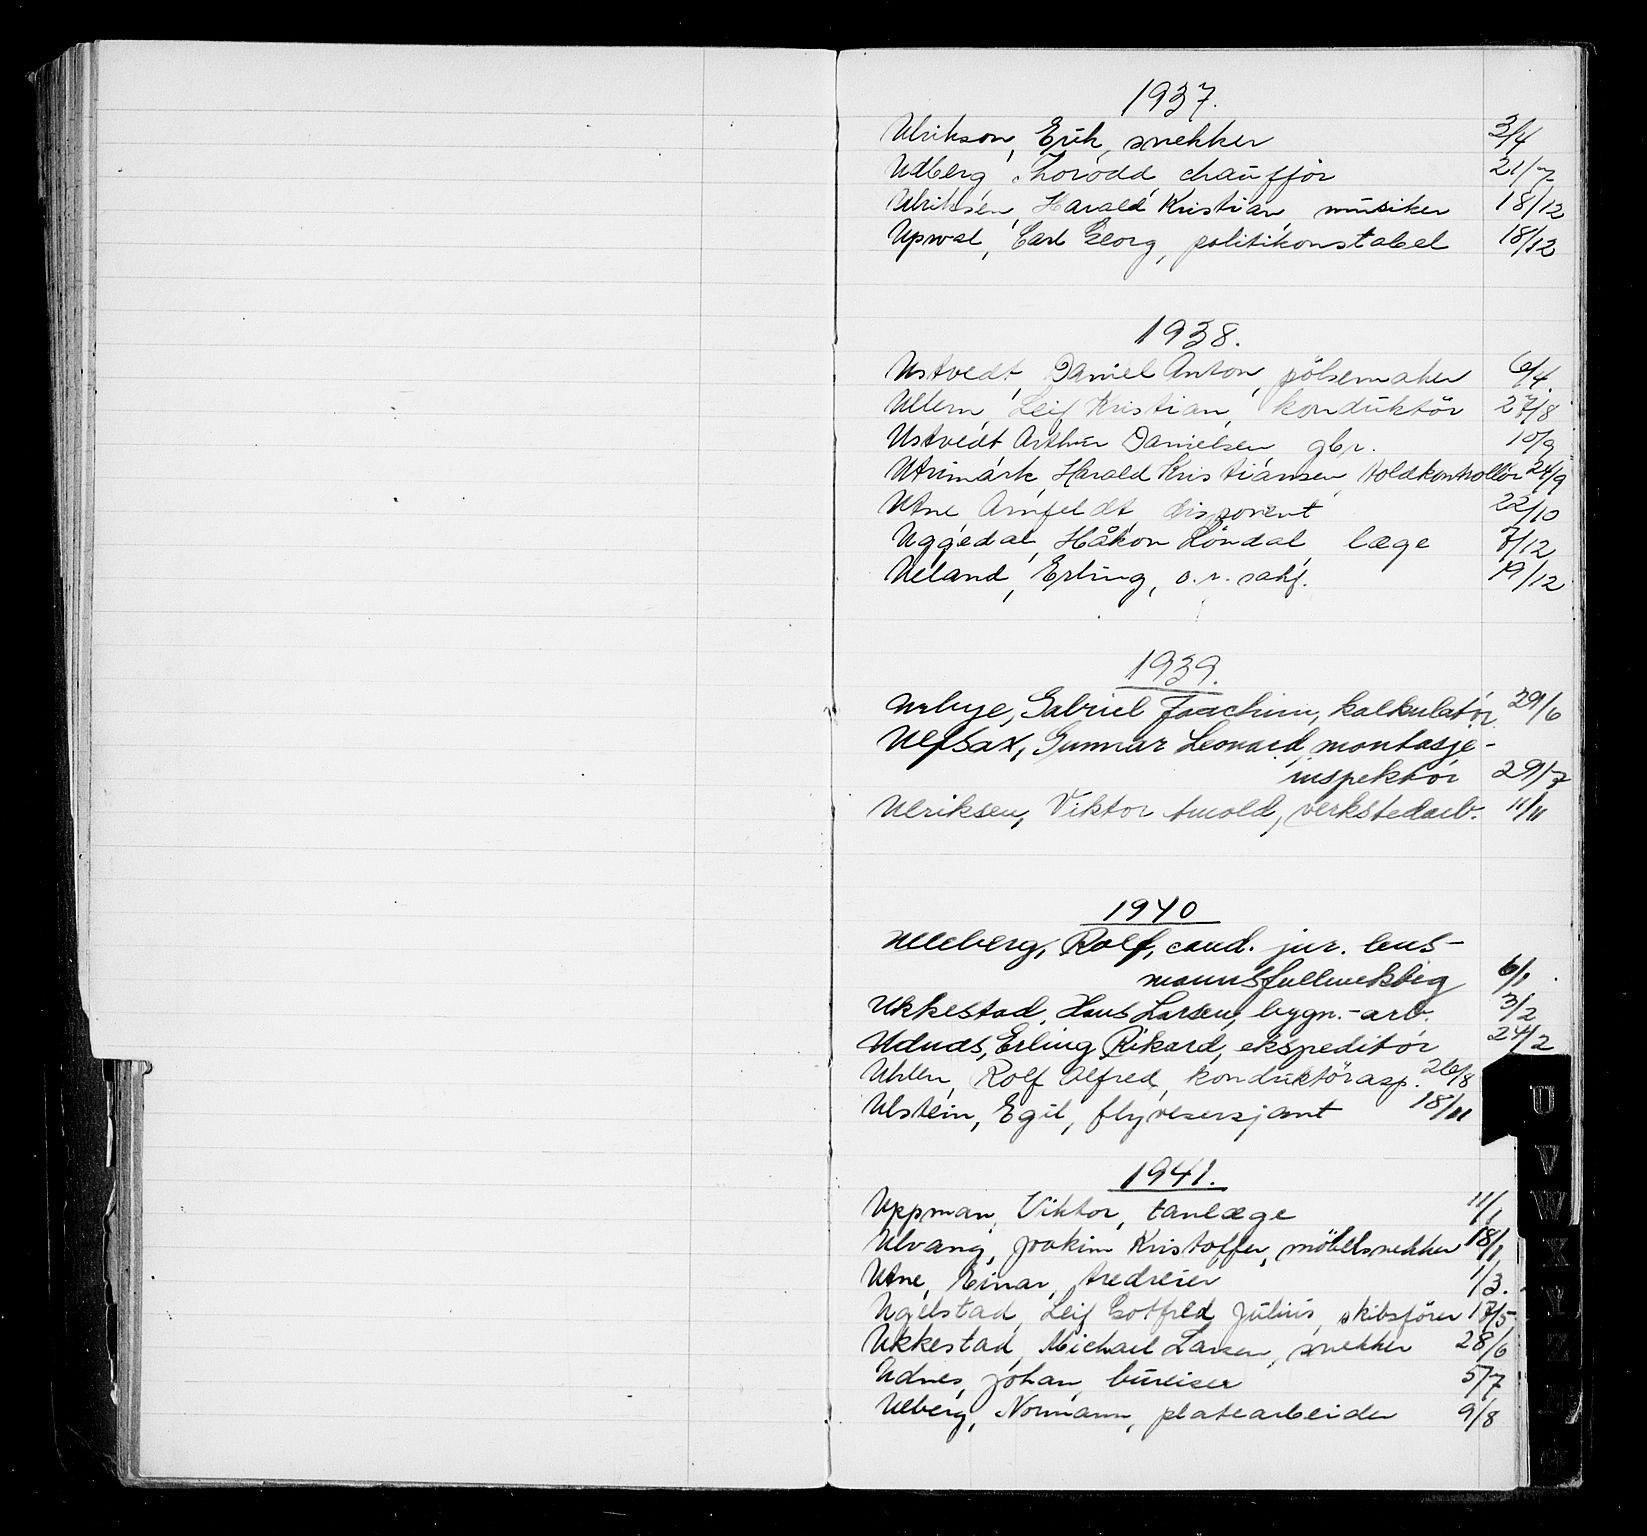 1937.
Ulrikson, Erik, snekker 3/4
Udberg Thorodd chauffør 21/7
Ulriksen, Harald Kristian, musiker 18/12
Upwal, Carl Georg, politikonstabel 18/12
1938.
Ustvedt, Daniel Anton, pölsemaker 6/4.
Ullern, Leif Kristian, konduktör 27/8
Ustvedt Arthur Danielsen gbr. 10/9
Utrimark, Harald Kristiansen, toldkontrollör 24/9
Utne Arnfeldt, disponent 22/10
Uggedal, Håkon Löndal, læge 7/12
Ueland, Erling, o.r. sakf. 19/12
1939.
Urbye, Gabriel Joachim, kalkulatör 29/6
Ulfsax, Gunnar Leonard, montasje-
inspektör 29/7
Ulriksen, Viktor Arnold, verkstedarb. 11/11
1940
Ulleberg, Rolf, cand. jur. lens-
mannsfullmektig 6/1
Ukkestad, Hans Larsen, bygn.-arb. 3/2
Udnæs, Erling Rikard, ekspeditør 24/2
Uhlen, Rolf Alfred, konduktörasp. 26/8
Ulstein, Egil, flyvesersjant 18/11
1941.
Uppman, Viktor, tanlæge 11/1
Ulvang, Joakim Kristoffer, möbelsnekker 18/1
Utne, Einar, tredreier 1/3.
Ugelstad, Leif Gotfred Julius, skibsförer 17/5
Ukkestad, Michael Larsen, snekker 28/6
Udnes, Johan, bureiser 5/7
Ulberg, Normann, platearbeider 9/8
U
V
W
X
Y
Z
Æ
Ø